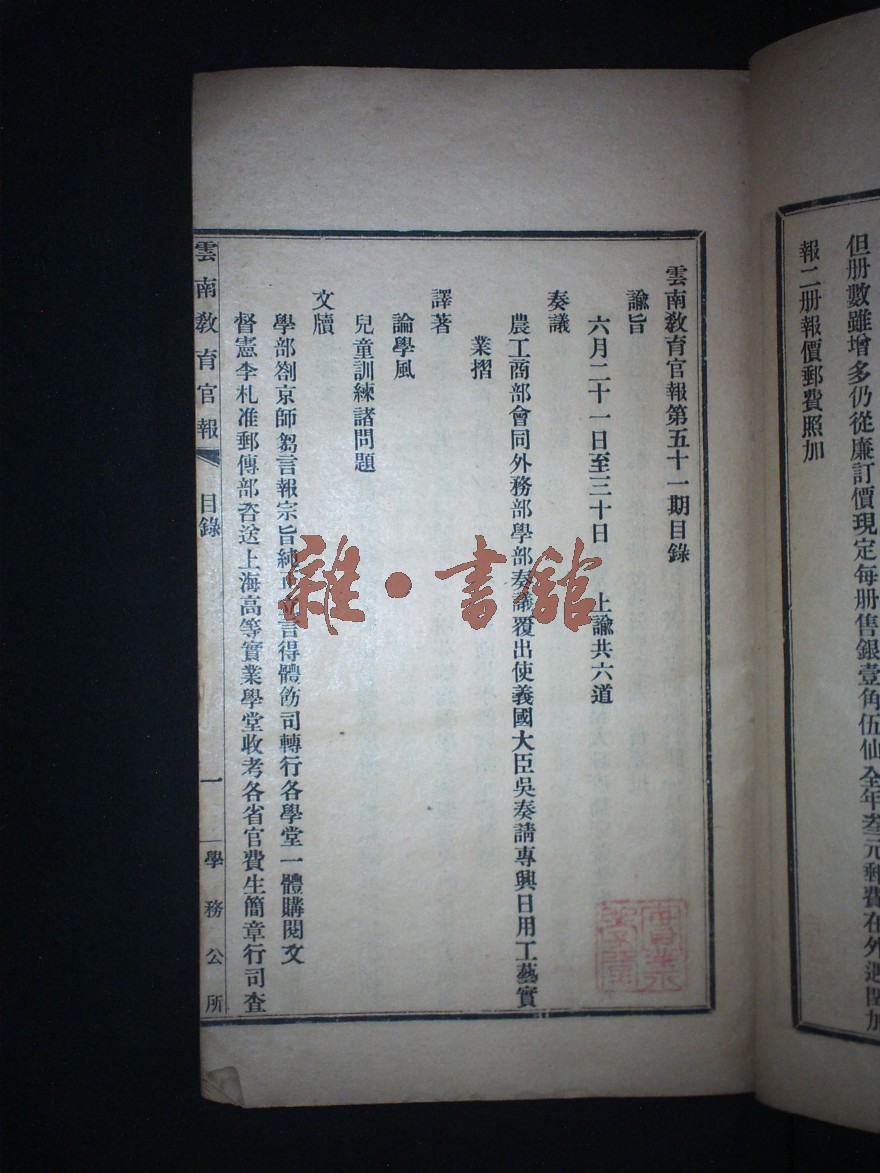 但册數雖增多仍從廉訂價現定每册售銀壹角伍仙全年叁元郵費在外遇閏加
報二册報價郵費照加
雲南教育官報第五十一期目錄
諭旨
六月二十一日至三十日 上諭共六道
奏議
農工商部會同外務部學部奏議覆出使義國大臣吳奏請專興日用工藝實
業摺
譯著
論學風
兒童訓練諸問題
文牘
學部劄京師芻言報宗旨純正立言得體飭司轉行各學堂一體購閱文
督憲李札准郵傳部咨送上海高等實業學堂收考各省官費生簡章行司查
雲南教育官報 目錄 一 學務公所
雜·書館